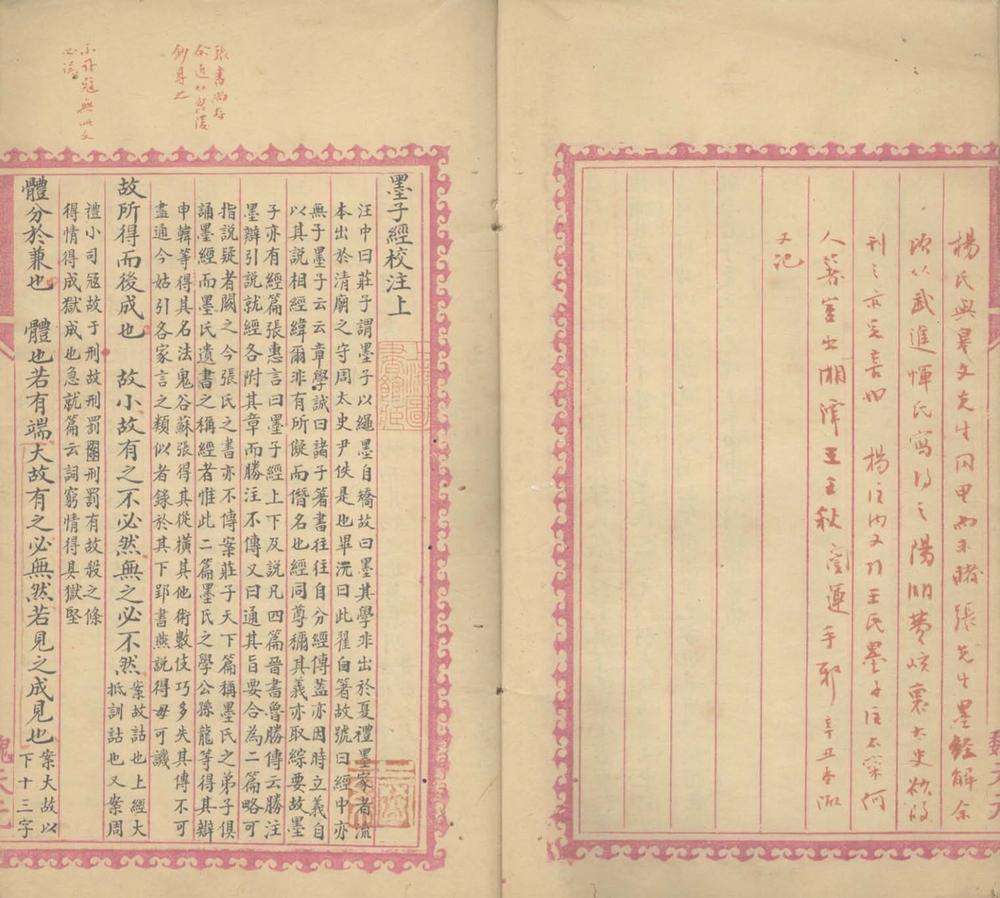 楊氏與皋文先生同里而未睹張先生墨經解余
頃從武進惲氏寫得之陽湖費屺懷太史欲改
刊之亦 楊注內又引王氏墨子注不審何
人箸豈出湘潭王壬秋闓運手耶辛丑春
又記
張書尚存
鈔得之
小司寇無此文
必誤
墨子經校注上
汪中曰莊子謂墨子以繩墨自矯故曰墨其學非出於夏禮墨家者流
本出於清廟之守周太史尹佚是也畢沅曰此翟自箸故號曰經中亦
無子墨子云云章學誠曰諸子箸書往往自分經傳蓋亦因時立義自
以其說相經緯爾非有所儗而僭名也經同尊稱其義亦取綜要故墨
子亦有經篇張惠言曰墨子經上下及說凡四篇晉書魯勝傳云勝注
墨辯引說就經各附其章而勝注不傳又曰通其旨要合為二篇略可
指說疑者闕之今張氏之書亦不傳案莊子天下篇稱墨氏之弟子俱
誦墨經而墨氏遺書之稱經者惟此二篇墨氏之學公孫龍等得其辯
申韓等得其名法鬼谷蘇張得其從橫其他術數伎巧多失其傳不可
盡通今姑引各家言之類似者錄於其下郢書燕說得毋可譏
故所得而後成也 故小故有之不必然無之必不然
案故詁也上經大
抵訓詁也又案周
禮小司寇故于刑故刑罰刑罰有故殺之條
得情得成獄成也急就篇云詞窮情得具獄堅
體分於兼也 體也若有端大故有之必無然若見之成見也
案大故以
下十三字